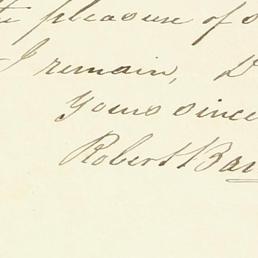 the pleasure of s
I remain, D
Yours since
Robert Bar